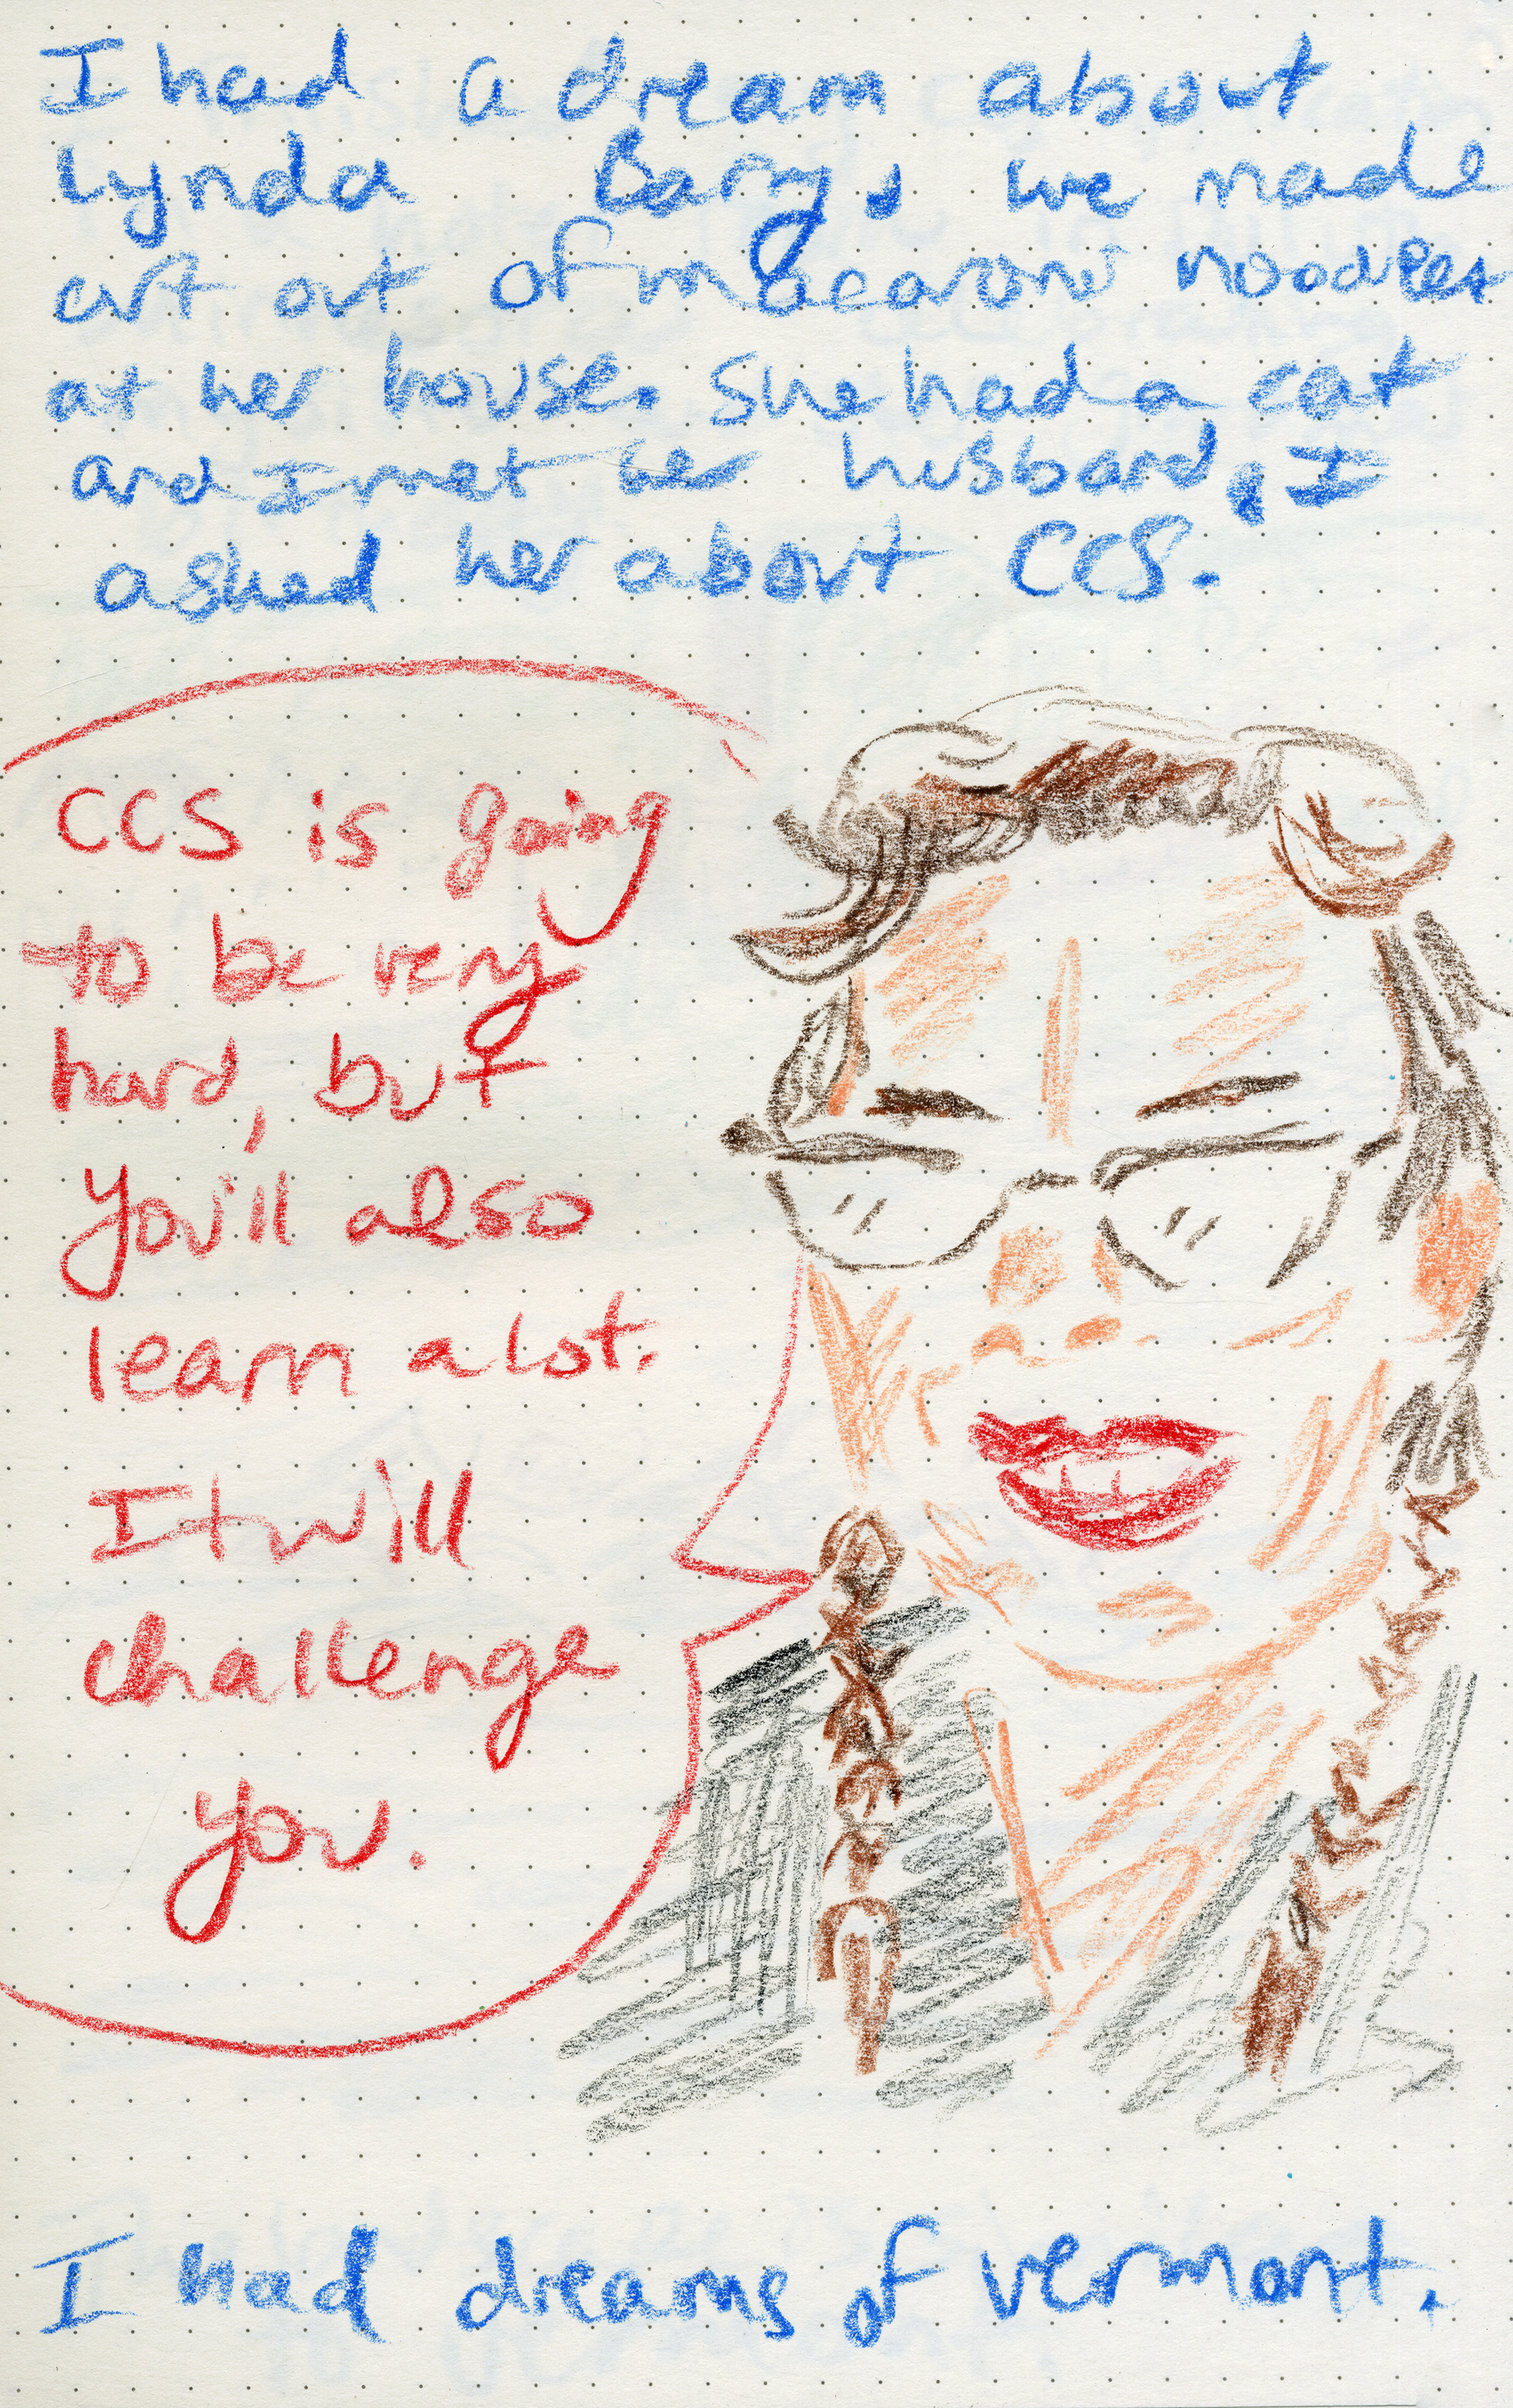 I had a dream about
Lynda Barry, we made
art out of macaroni noodles
at her house. She had a cat
and I met her husband, I
asked her about CCS.
CCS is going
to be very
hard, but
you'll also
learn a lot.
It will
challenge
you.
I had dreams of vermont.